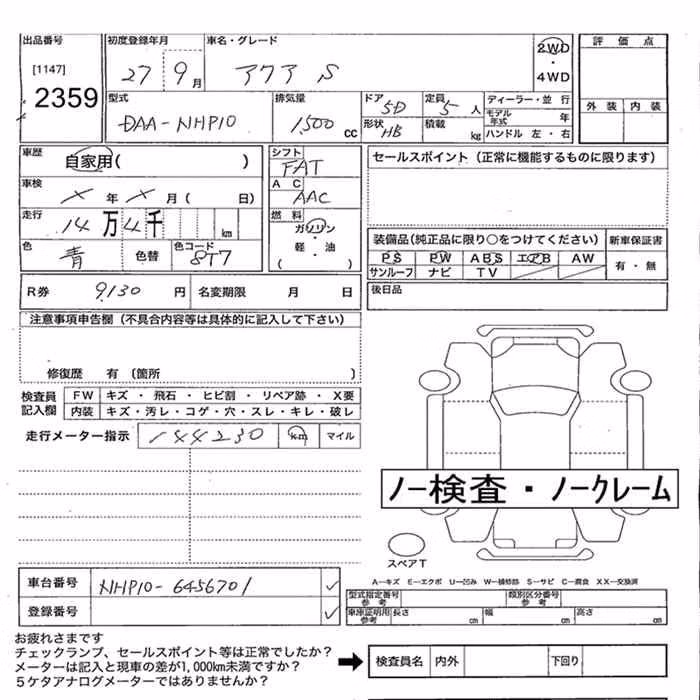 出品番号
[1147]
2359
初度登録年月
27 9月
車名・グレード
アクア S
2WD
・
4WD
評価点
外装 内装
型式
DAA-NHP10
排気量
1500 cc
ドア
5D
形状 HB
定員
5 人
積載 kg
ディーラー・並行
モデル年式 年
ハンドル 左・右
車歴
自家用( )
シフト
FAT
セールスポイント(正常に機能するものに限ります)
車検
× 年 × 月( 日)
A C
AAC
走行
14万4千 km
燃料
ガソリン
軽・油
( )
色
青
色替
色コード
8T7
装備品(純正品に限り○をつけてください)
新車保証書
PS PW ABS エアB AW
サンルーフ ナビ TV
有・無
R券 9130 円
名変期限 月 日
後日品
注意事項申告欄(不具合内容等は具体的に記入して下さい)
修復歴 有(箇所 )
検査員記入欄
FW キズ・飛石・ヒビ割・リペア跡・X要
内装 キズ・汚レ・コゲ・穴・スレ・キレ・破レ
走行メーター指示 144230 km マイル
ノー検査・ノークレーム
スペアT
A―キズ E―エクボ U―凹み W―補修跡 S―サビ C―腐食 XX―交換済
車台番号 NHP10-6456701 ✓
登録番号 ✓
型式指定番号
参考
類別区分番号
参考
車庫証明用
参考
長さ cm 幅 cm 高さ cm
お疲れさまです
チェックランプ、セールスポイント等は正常でしたか?
メーターは記入と現車の差が1,000km未満ですか?
5ケタアナログメーターではありませんか?
検査員名 内外 下回り